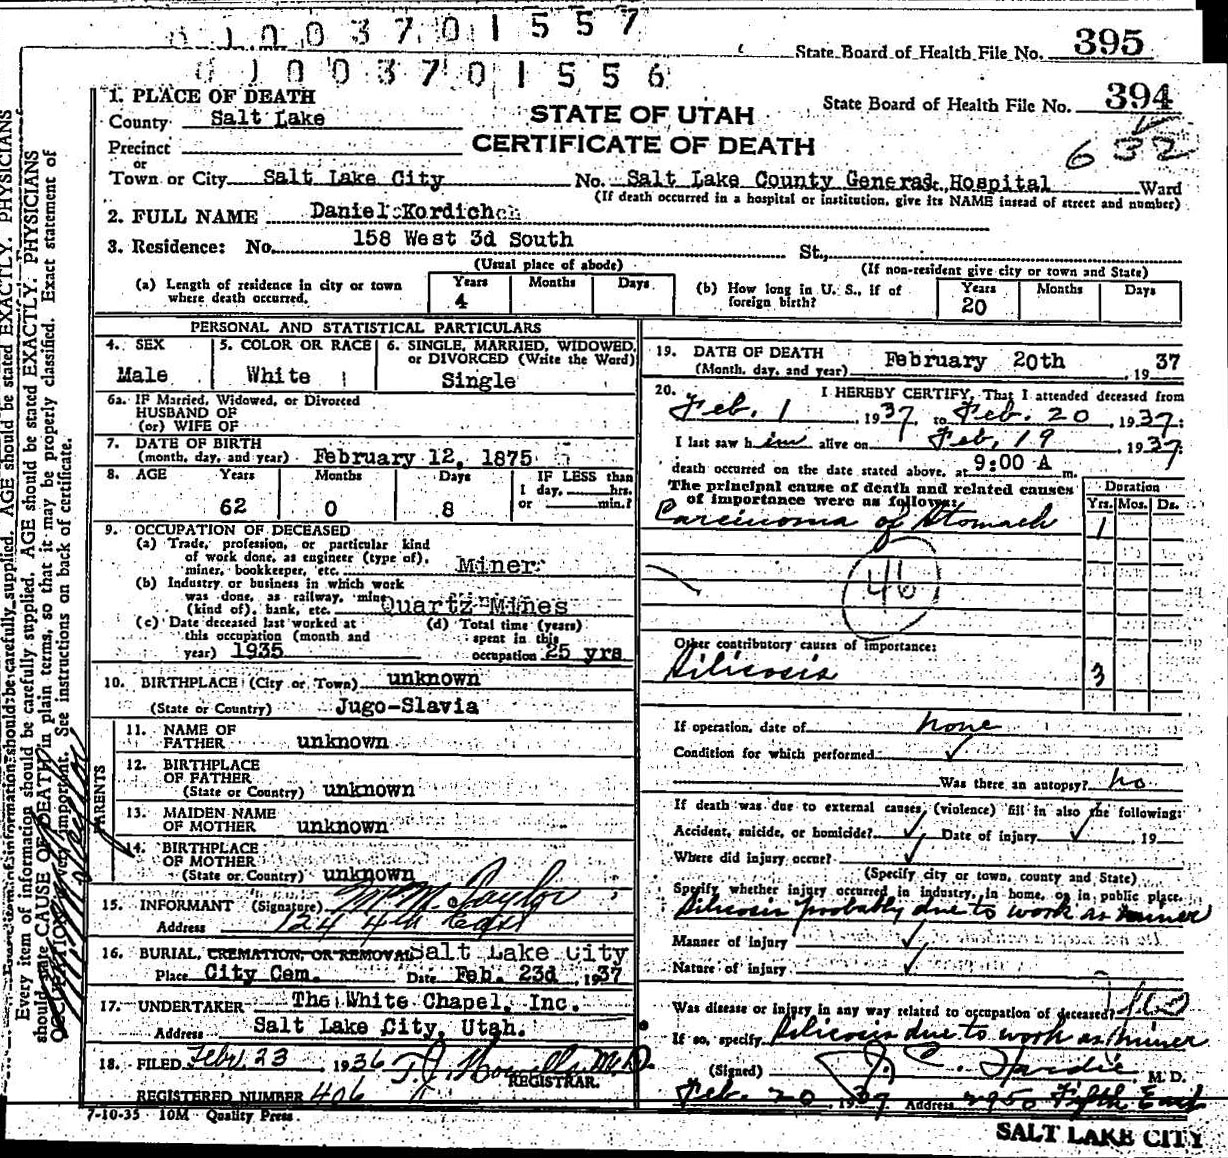 0 1 0 0 3 7 0 1 5 5 7
State Board of Health File No. 395
0 1 0 0 3 7 0 1 5 5 6
1. PLACE OF DEATH
State Board of Health File No. 394
County Salt Lake
STATE OF UTAH
CERTIFICATE OF DEATH
632
Precinct
or
Town or City Salt Lake City No. Salt Lake County General Hospital Ward
(If death occurred in a hospital or institution, give its NAME instead of street and number)
2. FULL NAME Daniel Kordich
3. Residence: No. 158 West 3d South St.,
(Usual place of abode) (If non-resident give city or town and State)
(a) Length of residence in city or town where death occurred. Years 4 Months Days
(b) How long in U. S., if of foreign birth? Years 20 Months Days
PERSONAL AND STATISTICAL PARTICULARS
4. SEX Male
5. COLOR OR RACE White
6. SINGLE, MARRIED, WIDOWED, or DIVORCED (Write the Word) Single
6a. IF Married, Widowed, or Divorced
HUSBAND OF
(or) WIFE OF
7. DATE OF BIRTH
(month, day, and year) February 12, 1875
8. AGE Years Months Days IF LESS than
1 day, hrs.
62 0 8 or min.?
9. OCCUPATION OF DECEASED
(a) Trade, profession, or particular kind
of work done, as engineer (type of),
miner, bookkeeper, etc. Miner
(b) Industry or business in which work
was done, as railway, mine
(kind of), bank, etc. Quartz Mines
(c) Date deceased last worked at
this occupation (month and
year) 1935
(d) Total time (years)
spent in this
occupation 25 yrs
10. BIRTHPLACE (City or Town) unknown
(State or Country) Jugo-Slavia
PARENTS
11. NAME OF
FATHER unknown
12. BIRTHPLACE
OF FATHER
(State or Country) unknown
13. MAIDEN NAME
OF MOTHER unknown
14. BIRTHPLACE
OF MOTHER
(State or Country) unknown
15. INFORMANT (Signature) M. Taylor
Address 124 4th East
16. BURIAL, CREMATION, OR REMOVAL Salt Lake City
Place City Cem. Date Feb. 23d, 1937
17. UNDERTAKER The White Chapel, Inc.
Address Salt Lake City, Utah.
18. FILED Febr. 23, 1936 T. J. Howells M.D.
REGISTRAR.
REGISTERED NUMBER 406
7-10-35 10M Quality Press
19. DATE OF DEATH
(Month, day, and year) February 20th, 1937
20. I HEREBY CERTIFY, That I attended deceased from
Feb. 1, 1937, to Feb. 20, 1937:
I last saw him alive on Feb. 19, 1937
death occurred on the date stated above, at 9:00 A m.
The principal cause of death and related causes
of importance were as follows:
Duration
Yrs. Mos. Ds.
Carcinoma of Stomach 1
46
Other contributory causes of importance:
Silicosis 3
If operation, date of none
Condition for which performed
Was there an autopsy? no
If death was due to external causes (violence) fill in also the following:
Accident, suicide, or homicide? Date of injury 19
Where did injury occur?
(Specify city or town, county and State)
Specify whether injury occurred in industry, in home, or in public place.
Silicosis probably due to work as miner
Manner of injury
Nature of injury
Was disease or injury in any way related to occupation of deceased?
If so, specify Silicosis due to work as miner
(Signed) J. C. Hardie M. D.
Feb. 20 1937 Address 2950 Fifth East
SALT LAKE CITY
Every item of information should be carefully supplied. AGE should be stated EXACTLY. PHYSICIANS
should state CAUSE OF DEATH in plain terms, so that it may be properly classified. Exact statement of
OCCUPATION is very important. See instructions on back of certificate.